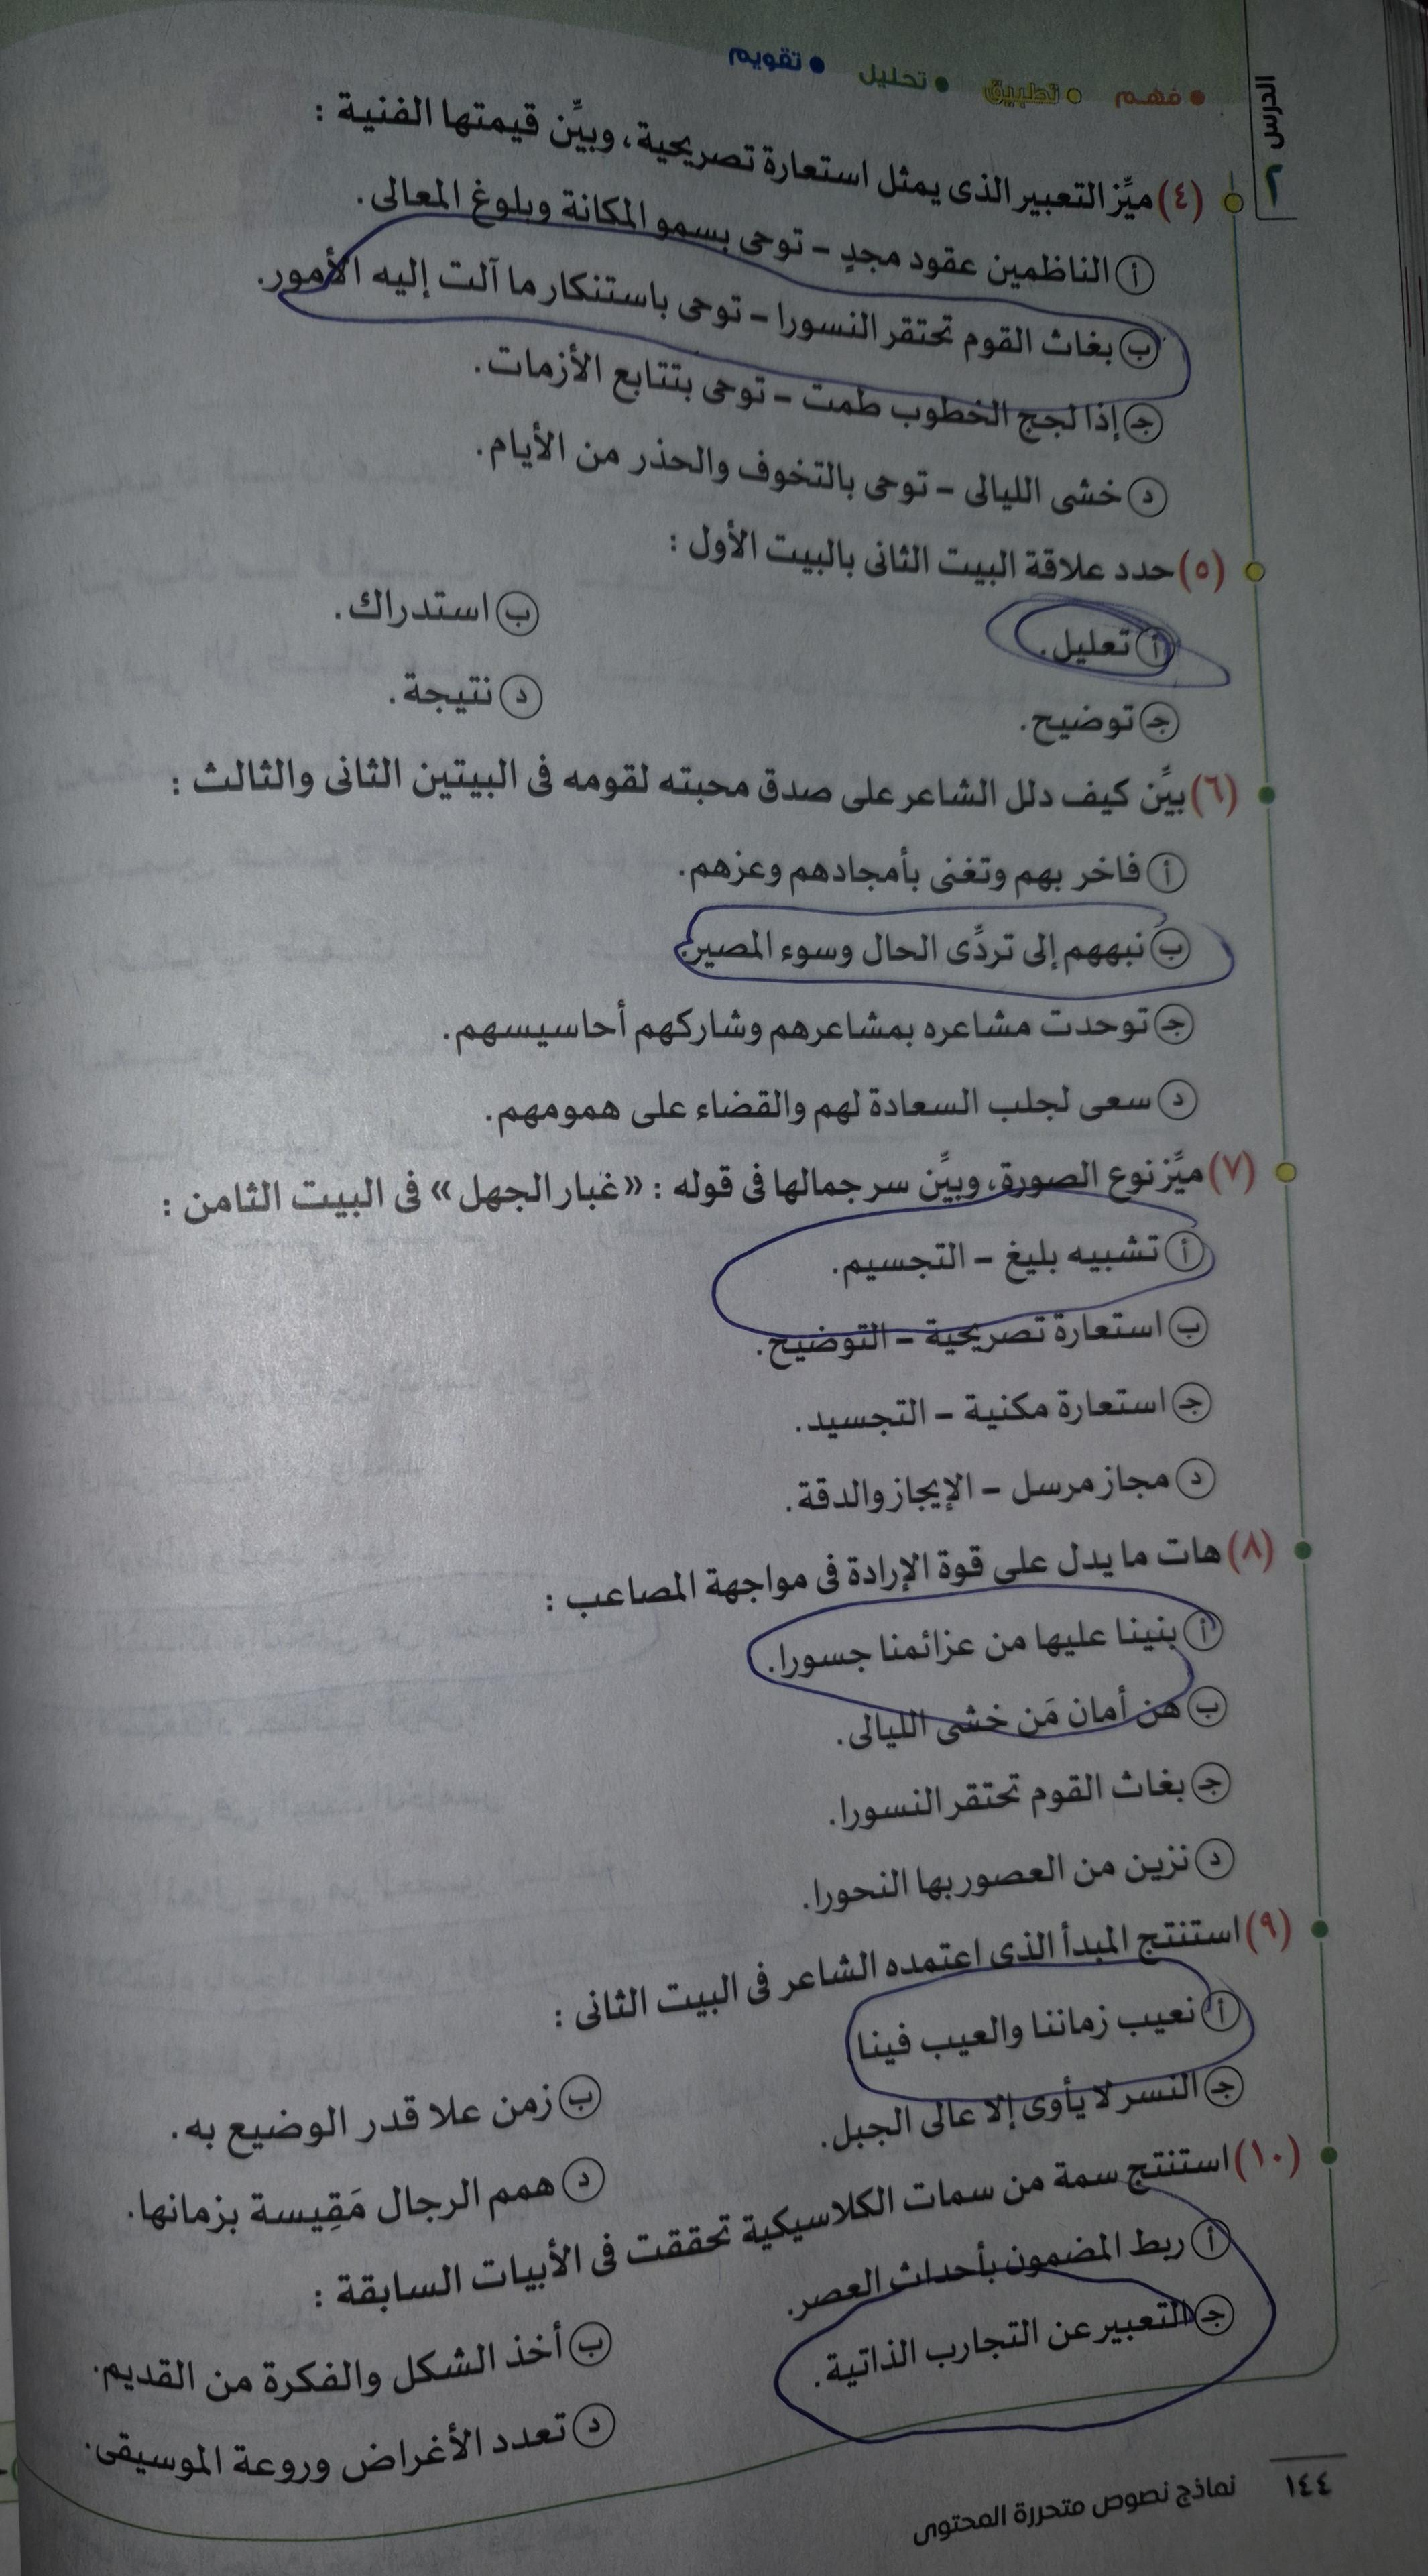 الدرس ٢
• فهم • تطبيق • تحليل • تقويم
(٤) ميِّز التعبير الذى يمثل استعارة تصريحية، وبيِّن قيمتها الفنية :
أ الناظمين عقود مجدٍ – توحى بسمو المكانة وبلوغ المعالى.
ب بغاث القوم تحتقر النسورا – توحى باستنكار ما آلت إليه الأمور.
جـ إذا لجج الخطوب طمت – توحى بتتابع الأزمات.
د خشى الليالى – توحى بالتخوف والحذر من الأيام.
(٥) حدد علاقة البيت الثانى بالبيت الأول :
أ تعليل. ب استدراك.
جـ توضيح. د نتيجة.
(٦) بيِّن كيف دلل الشاعر على صدق محبته لقومه فى البيتين الثانى والثالث :
أ فاخر بهم وتغنى بأمجادهم وعزهم.
ب نبههم إلى تردِّى الحال وسوء المصير.
جـ توحدت مشاعره بمشاعرهم وشاركهم أحاسيسهم.
د سعى لجلب السعادة لهم والقضاء على همومهم.
(٧) ميِّز نوع الصورة، وبيِّن سر جمالها فى قوله : «غبار الجهل» فى البيت الثامن :
أ تشبيه بليغ – التجسيم.
ب استعارة تصريحية – التوضيح.
جـ استعارة مكنية – التجسيد.
د مجاز مرسل – الإيجاز والدقة.
(٨) هات ما يدل على قوة الإرادة فى مواجهة المصاعب :
أ بنينا عليها من عزائمنا جسورا.
ب هن أمان مَن خشى الليالى.
جـ بغاث القوم تحتقر النسورا.
د نزين من العصور بها النحورا.
(٩) استنتج المبدأ الذى اعتمده الشاعر فى البيت الثانى :
أ نعيب زماننا والعيب فينا ب زمن علا قدر الوضيع به.
جـ النسر لا يأوى إلا عالى الجبل. د همم الرجال مَقِيسة بزمانها.
(١٠) استنتج سمة من سمات الكلاسيكية تحققت فى الأبيات السابقة :
أ ربط المضمون بأحداث العصر. ب أخذ الشكل والفكرة من القديم.
جـ التعبير عن التجارب الذاتية. د تعدد الأغراض وروعة الموسيقى.
١٤٤ نماذج نصوص متحررة المحتوى